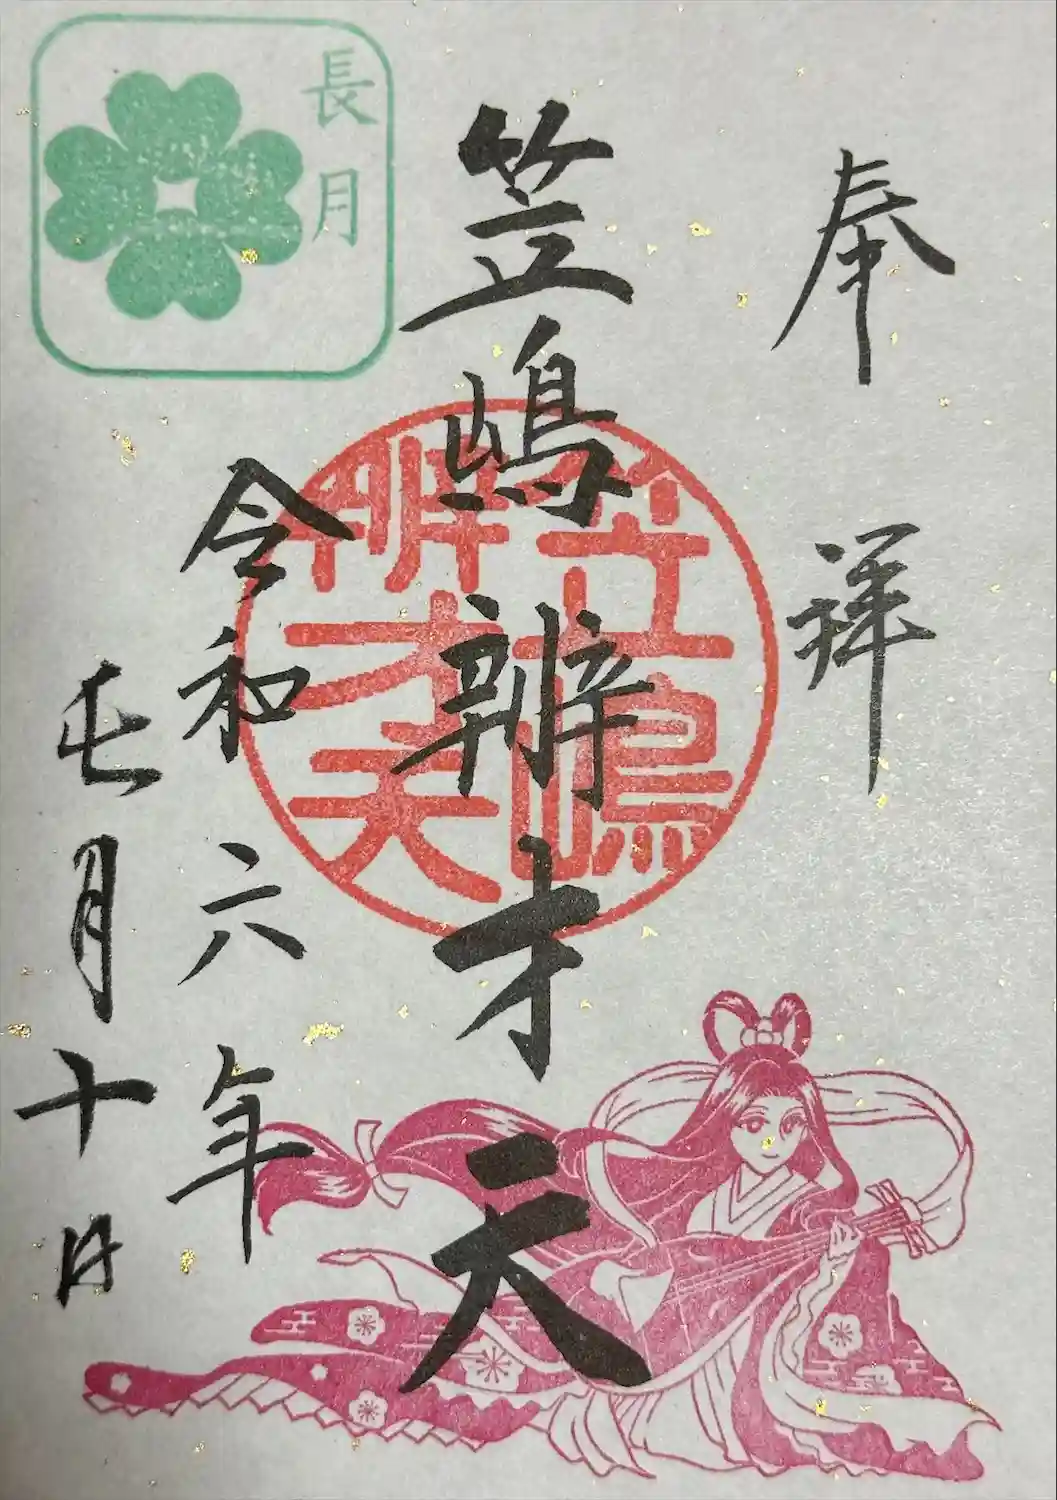 奉拝
笠嶋辨才天
笠嶋
辨才天
令和六年
長月十日
長月